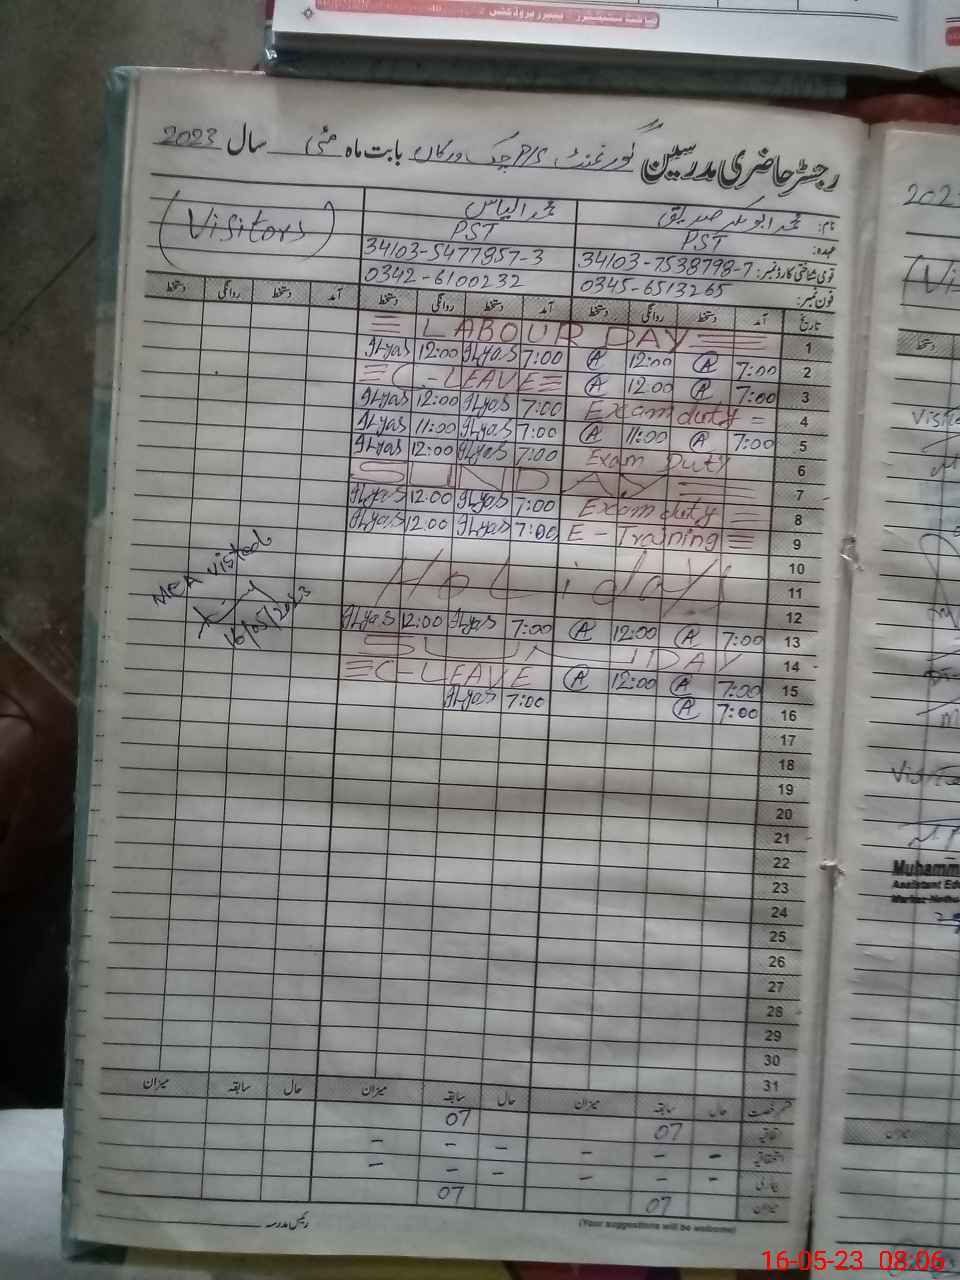 رجسٹر حاضری مدرسین گورنمنٹ P/S چک ورکاں بابت ماہ مئی سال 2023
نام: محمد ابوبکر صدیق محمد الیاس (Visitors)
عہدہ: PST PST
قومی شناختی کارڈ نمبر: 34103-7538798-7 34103-5477857-3
فون نمبر: 0345-6513265 0342-6100232
تاریخ آمد دستخط روانگی دستخط آمد دستخط روانگی دستخط آمد دستخط روانگی دستخط
1 LABOUR DAY
2 7:00 A 12:00 A 7:00 Ilyas 12:00 Ilyas
3 7:00 A 12:00 A C-LEAVE
4 Exam duty 7:00 Ilyas 12:00 Ilyas
5 7:00 A 11:00 A 7:00 Ilyas 11:00 Ilyas
6 Exam Duty 7:00 Ilyas 12:00 Ilyas
7 SUNDAY
8 Exam duty 7:00 Ilyas 12:00 Ilyas
9 E-Training 7:00 Ilyas 12:00 Ilyas
10
11 Holidays
12
13 7:00 A 12:00 A 7:00 Ilyas 12:00 Ilyas
14 SUNDAY
15 7:00 A 12:00 A C-LEAVE
16 7:00 A 7:00 Ilyas
17
18
19
20
21
22
23
24
25
26
27
28
29
30
31
MEA visited
16/05/2023
قسم رخصت حال سابقہ میزان حال سابقہ میزان حال سابقہ میزان
اتفاقیہ 07 07
استحقاقیہ - - - - - -
بیماری - - - - - -
میزان 07 07
رئیس مدرسہ
(Your suggestions will be welcome)
2023
(Vi
دستخط
Visi
Muhamm
Assistant Edu
میزان
16-05-23 08:06